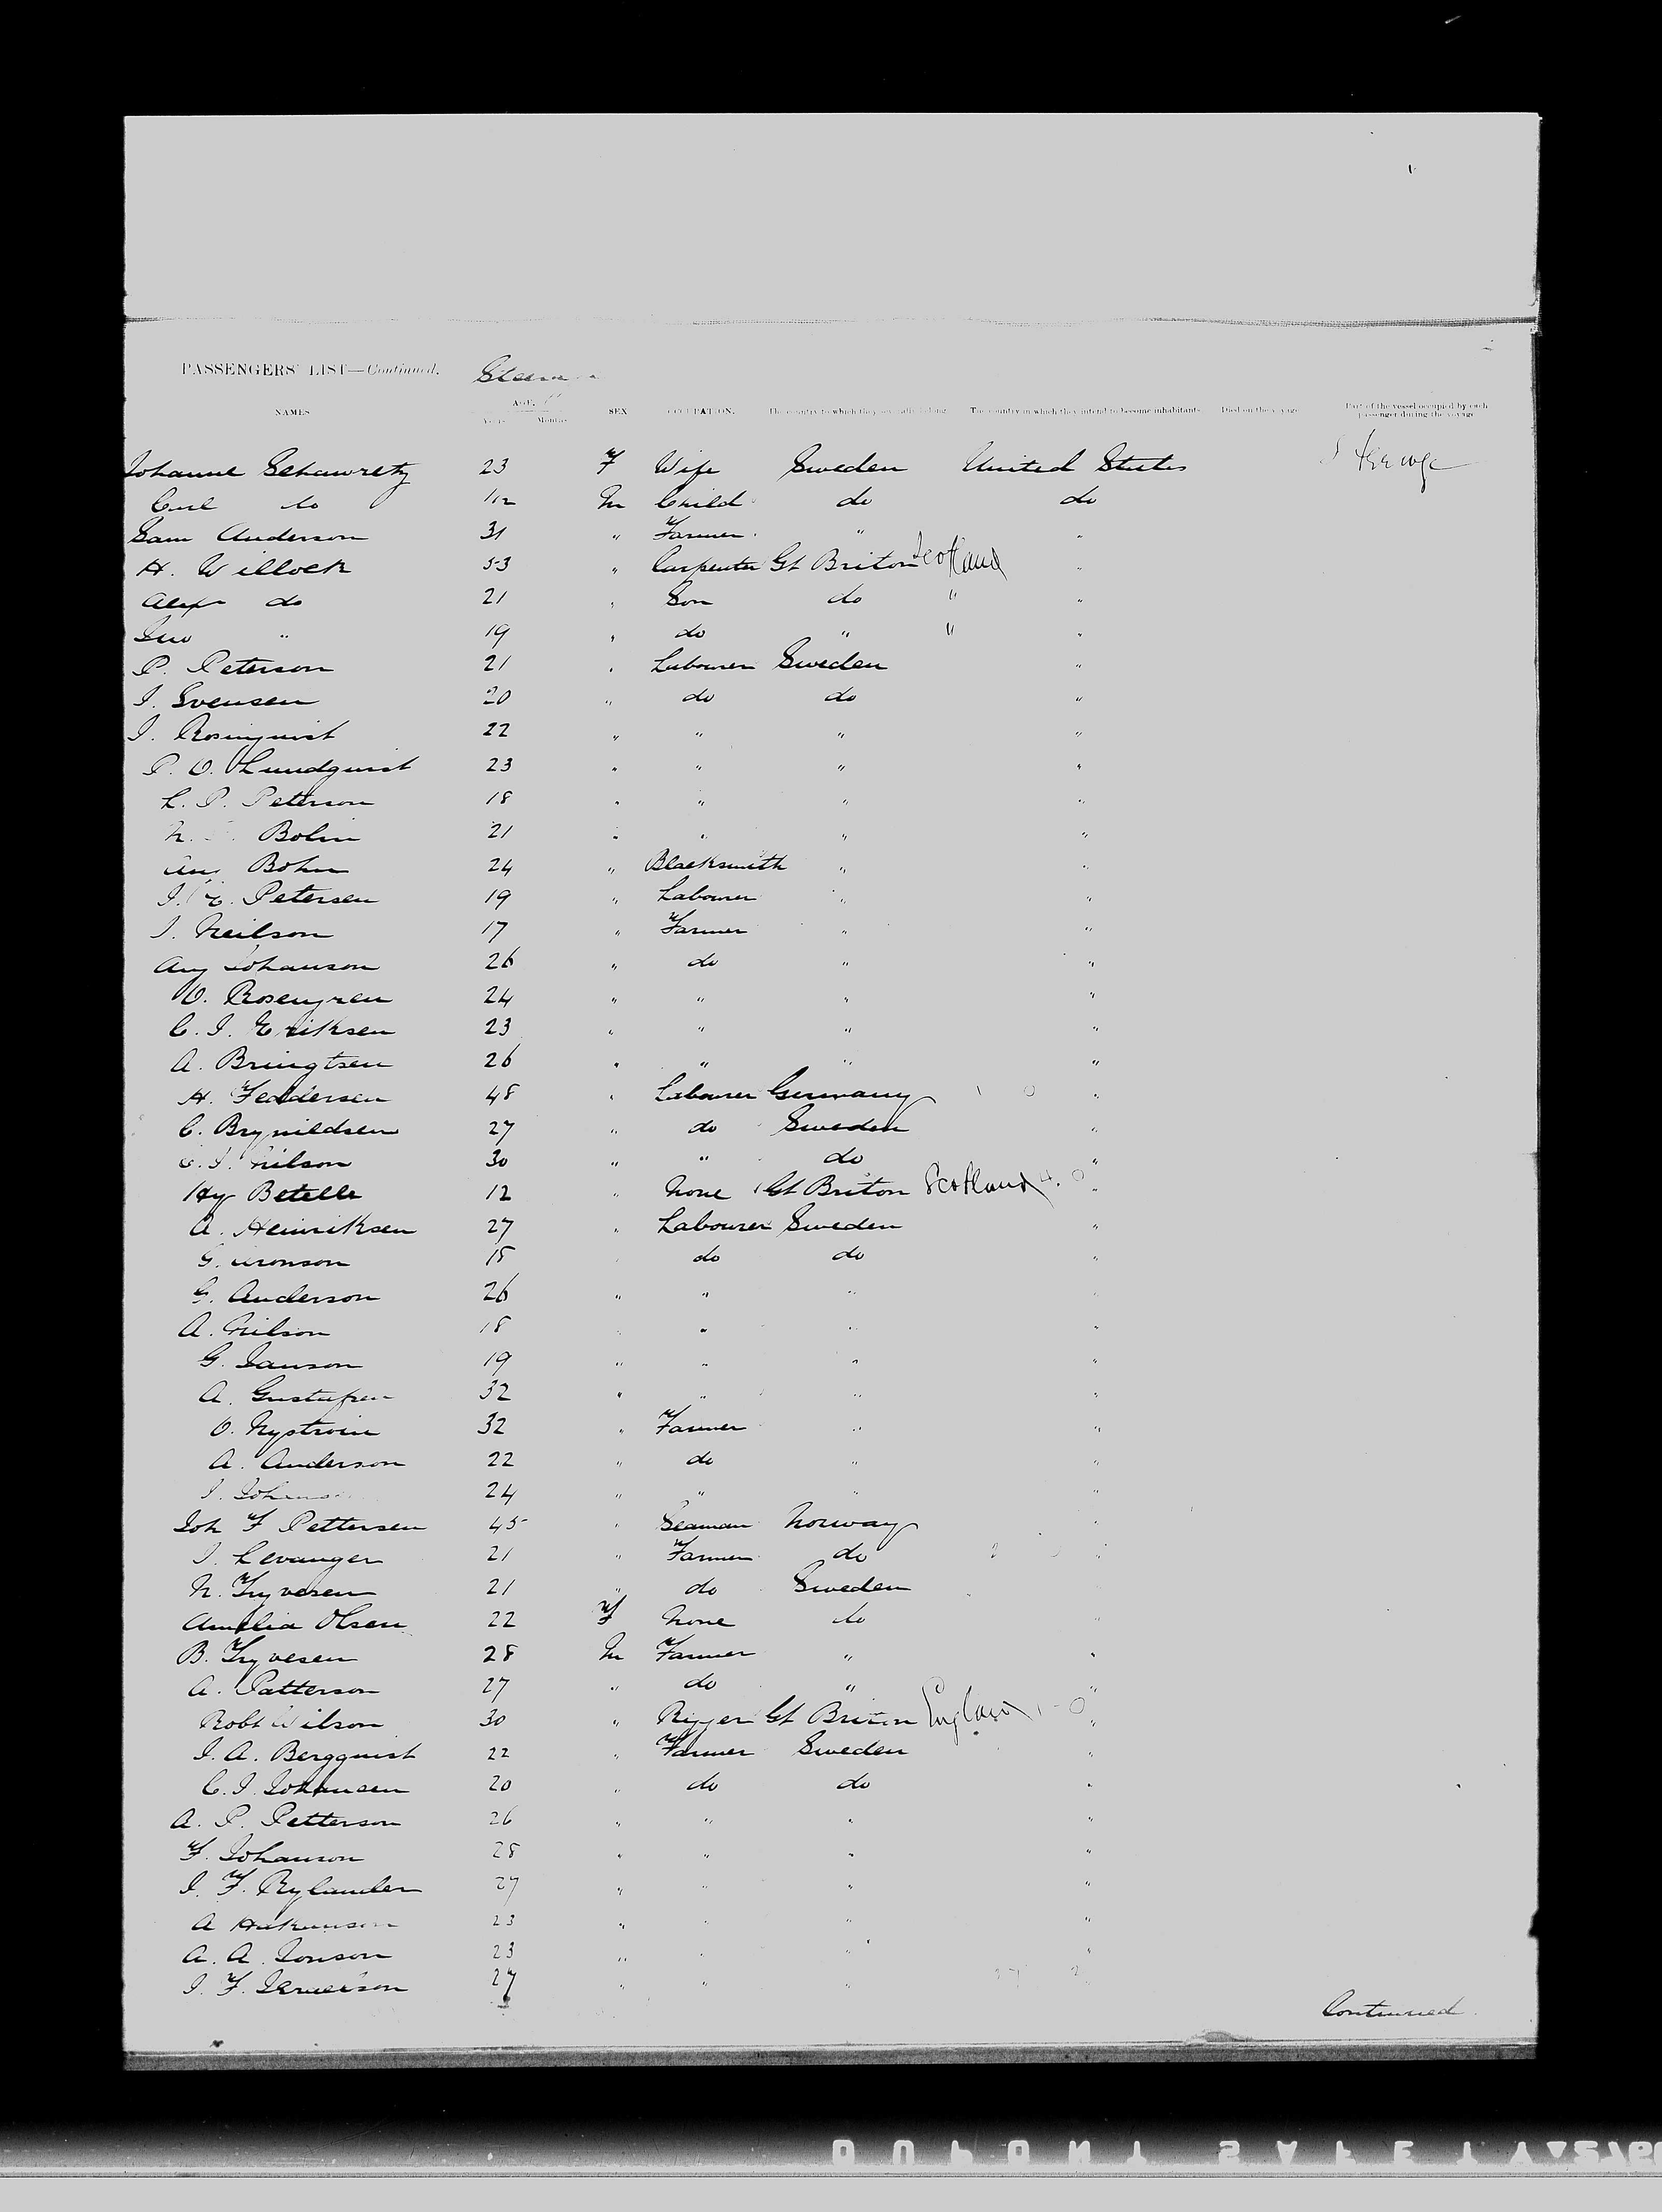 PASSENGERS' LIST—Continued.
NAMES AGE. Years Months SEX OCCUPATION. The country to which they severally belong The country in which they intend to become inhabitants Died on the voyage Part of the vessel occupied by each passenger during the voyage
Johanne Schawrety 23 F Wife Sweden United States Steerage
Carl do 1/12 M Child do do
Sam Anderson 31 " Farmer " "
H. Willock 53 " Carpenter Gt Briton Scotland "
Alex do 21 " Son do " "
Geo " 19 " do " " "
P. Peterson 21 " Labourer Sweden "
I. Svensen 20 " do do "
I. Rosinquist 22 " " " "
P. O. Lundquist 23 " " " "
L. P. Peterson 18 " " " "
N. Bolin 21 " " " "
Aug Bohn 24 " Blacksmith " "
I. E. Petersen 19 " Labourer " "
I. Neilson 17 " Farmer " "
Aug Johanson 26 " do " "
O. Rosengren 24 " " " "
C. I. Eriksen 23 " " " "
A. Bringtsen 26 " " " "
H. Feddersen 48 " Labourer Germany 1 0 "
C. Brynildsen 27 " do Sweden "
C. I. Nilson 30 " " do "
Hy Betelle 12 " None Gt Briton Scotland 4. 0 "
A. Heinriksen 27 " Labourer Sweden "
G. Aronson 18 " do do "
G. Anderson 26 " " " "
A. Nilson 18 " " " "
G. Janson 19 " " " "
A. Gustafsen 32 " " " "
O. Nystrom 32 " Farmer " "
A. Anderson 22 " do " "
I. 24 " " " "
Joh F Pettersen 45 " Seaman Norway "
I. Levanger 21 " Farmer do 2 0 "
N. Tryvesen 21 " do Sweden
Amelia Olsen 22 F None do "
B. Tryvesen 28 M Farmer " "
A. Patterson 27 " do " "
Robt Wilson 30 " Rigger Gt Briton England 1 - 0 "
I. A. Bergquist 22 " Farmer Sweden "
C. I. Johansen 20 " do do "
A. P. Petterson 26 " " " "
F. Johanson 28 " " " "
I. F. Rylander 27 " " " "
A Hakanson 23 " " " "
A. A. Jonson 23 " " " "
I. F. 27 " " " "
Continued.